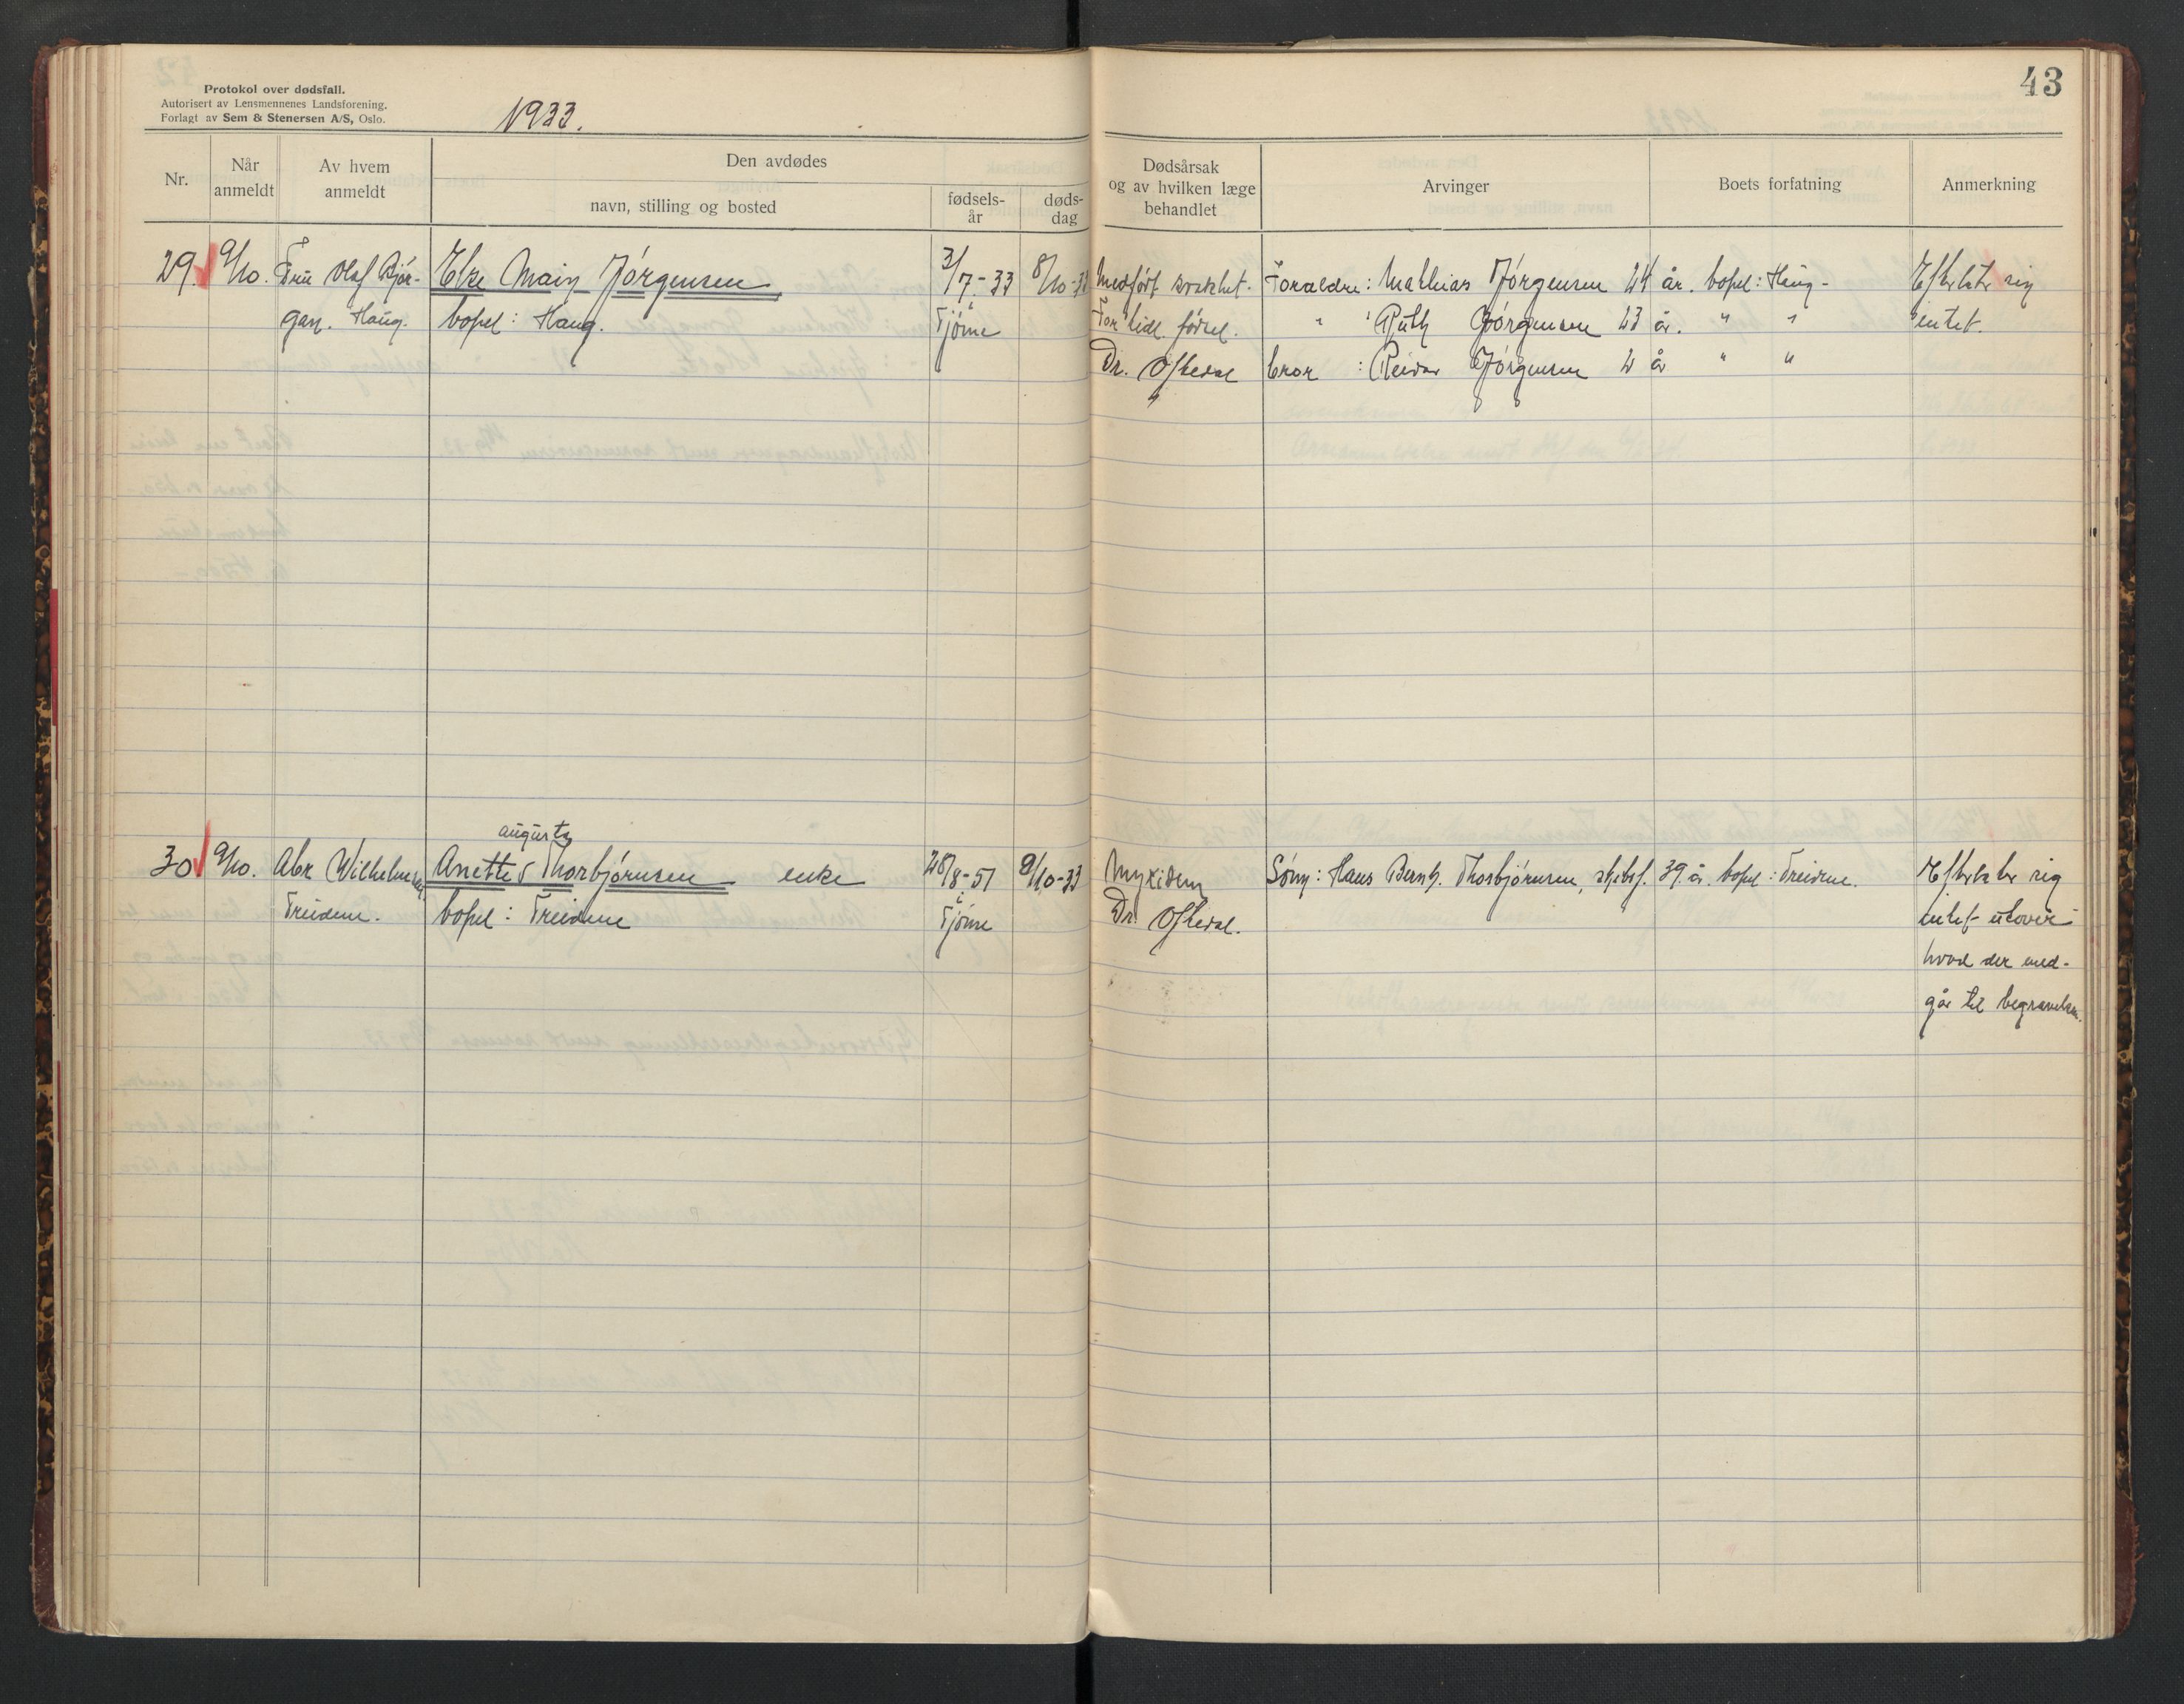 43
Protokol over dødsfall.
Autorisert av Lensmennenes Landsforening.
Forlagt av Sem & Stenersen A/S, Oslo.
1933.
Nr.
Når anmeldt
Av hvem anmeldt
Den avdødes
navn, stilling og bosted
fødsels-
år
døds-
dag
Dødsårsak
og av hvilken læge
behandlet
Arvinger
Boets forfatning
Anmerkning
29. 9/10. Fru Olaf Bjør- Else Mary Jørgensen 3/7.-33 8/10-33 Medfødt svakhet. Foraldre: Mathias Jørgensen 24 år. bopel: Haug - Efterlater sig
gan. Haug. bopel: Haug. Tjøme For tidl. fødsel. " Ruth Jørgensen 23 år. " " intet.
Dr. Oftedal bror : Reidar Jørgensen 2 år " "
augusta
30 9/10. Abr Wilhelmsen Anette Thorbjørnsen enke 28/8-51 9/10-33 Myxidem Sønn: Hans Bernh. Thorbjørnsen, 39 år. bopel: Treidene. Efterlater sig
Treidene. bopel: Treidene Tjøme Dr. Oftedal. intet utover
hvad der med-
går til begravelsen.